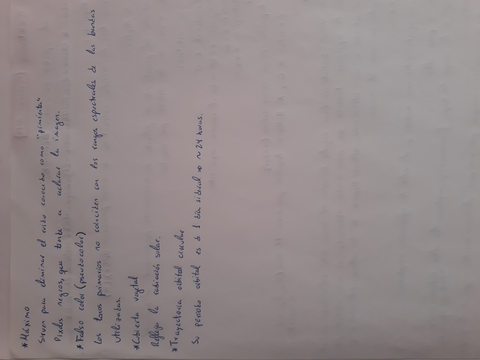 *Máximo
Sirven para eliminar el ruido conocido como "pimienta"
Pixeles negros, que tiende a aclarar la imagen.
*Falso color (pseudocolor)
Los tonos primarios no coinciden con los rangos espectrales de las bandas
utilizadas.
*Cubierta vegetal
Refleja la radiación solar.
*Trayectoria orbital circular
Su periodo orbital es de 1 día sideral no ~ 24 horas.